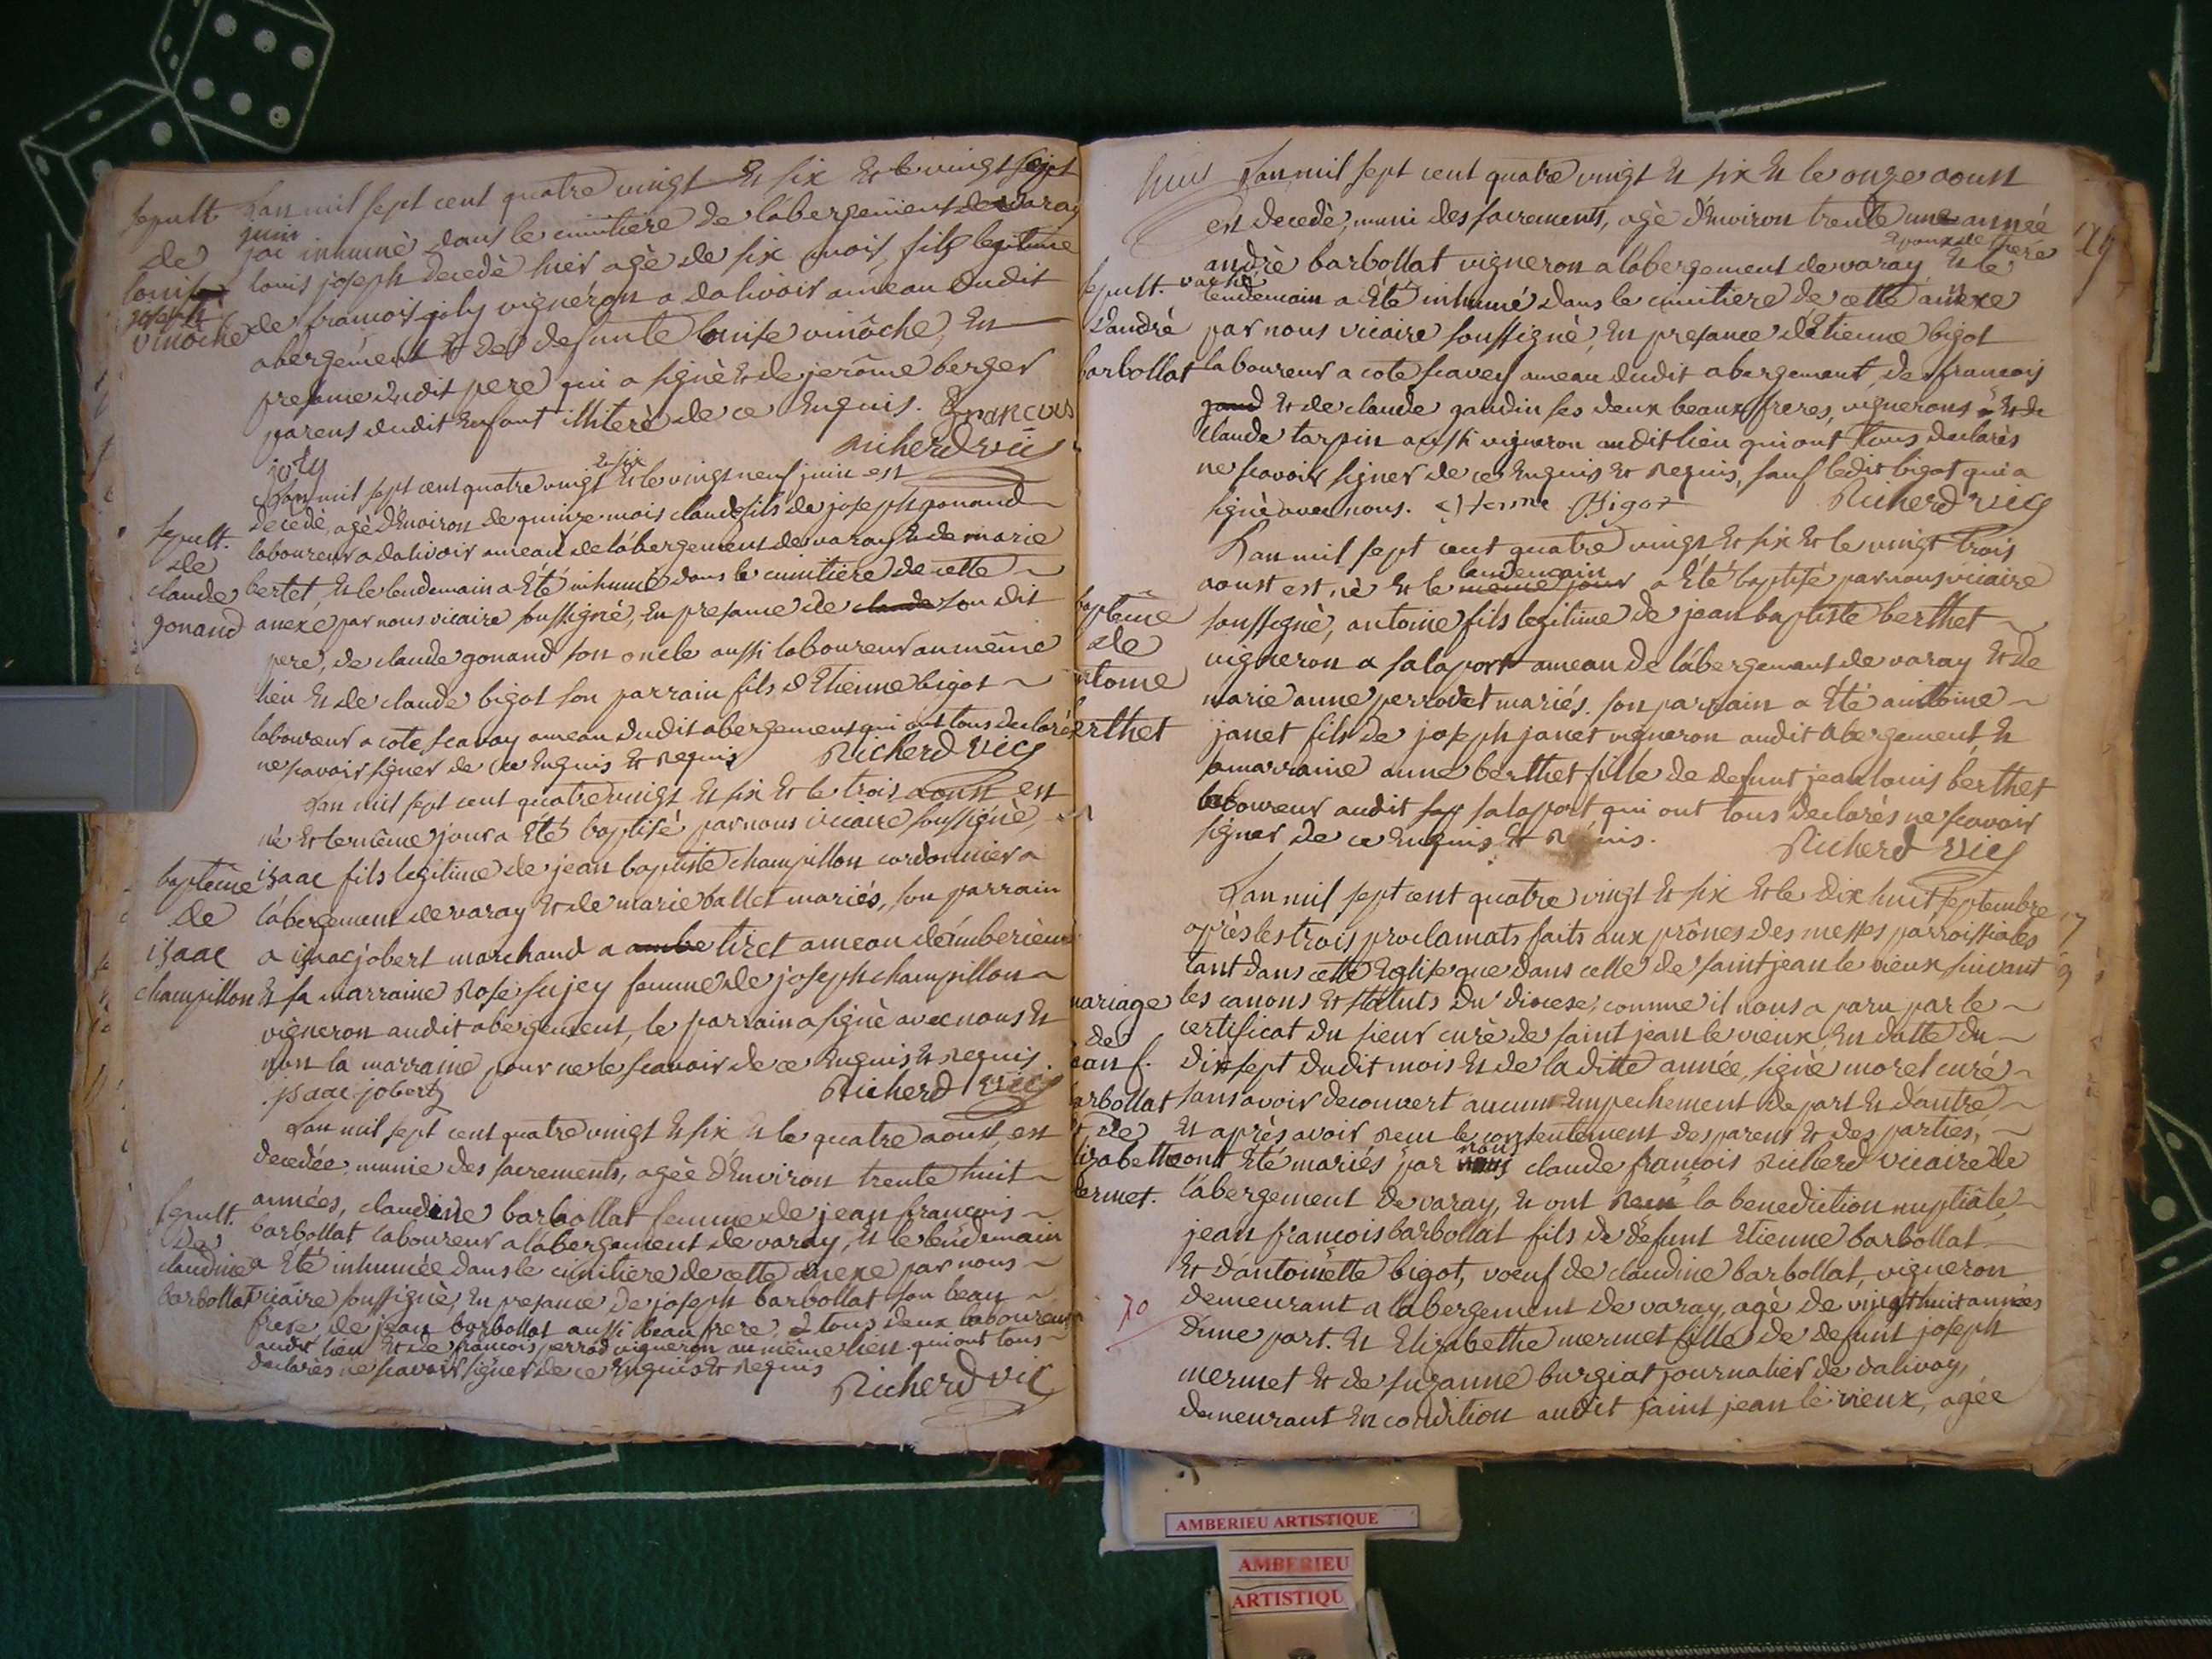 sepult.
de
louis
joseph
vinoche
Lan mil sept cent quatre vingt Et six Et le vingt sept
juin
jai inhumè dans le cimitiere de l'abergement de varay
louis joseph decedè hier agè de six mois, fils legitime
de francois joly vigneron a dalivoir ameau dudit
abergement Et de defunte louise vinôche, En
presance dudit pere qui a signè Et de jerôme berger
parens dudit Enfant illiterè de ce Enquis. francois
joly Richerd vic
Lan mil sept cent quatre vingt Et six Et le vingt neuf juin est
sepult.
de
claude
gonand
decedè, agè d'Environ de quinze mois claude fils de joseph gonand
laboureur a dalivoir ameau de l'abergement de varay Et de marie
bertet, Et le lendemain a Eté inhumé dans le cimitiere de cette
anexe par nous vicaire soussigné, En presance de claude son dit
pere, de claude gonand son oncle aussi laboureur au même
lieu Et de claude bigot son parrain fils d'Etienne bigot
laboureur a cote savay ameau dudit abergement qui ont tous declaré
ne scavoir signer de ce Enquis Et Requis Richerd vic
Lan mil sept cent quatre vingt Et six Et le trois aoust est
né Et le même jour a Eté baptisé par nous vicaire soussigné,
baptême
de
isaac
champillon
isaac fils legitime de jean baptiste champillon cordonnier a
l'abergement de varay Et de marie ballet mariés, son parrain
a isaac jobert marchand a ambe tiret ameau d'emberieux
Et sa marraine Rose sujey femme de joseph champillon
vigneron audit abergement, le parrain a signè avec nous Et
non la marraine pour ne le scavoir de ce Enquis Et Requis
isaac jobert Richerd vic
Lan mil sept cent quatre vingt Et six Et le quatre aoust, est
decedée, munie des sacrements, agèe d'Environ trente huit
sepult.
de
claudine
barbollat
années, claudine barbollat femme de jean francois
barbollat laboureur a l'abergement de varay, Et le lendemain
a Eté inhumée dans le cimitiere de cette anexe par nous
vicaire soussigné, En presance de joseph barbollat son beau
frere, de jean barbollat aussi beau frere, Et tous deux laboureurs
audit lieu Et de francois perrod vigneron au même lieu qui ont tous
declarés ne scavoir signer de ce Enquis Et Requis
Richerd vic
Lan mil sept cent quatre vingt Et six Et le onze aoust
est decedè, muni des sacrements, agè d'Environ trente une année
andrè barbollat vigneron a l'abergement de varay Epoux de Et le
sepult.
d'andrè
barbollat
lendemain a Eté inhumé dans le cimitiere de cette anexe
par nous vicaire soussignè, En presance d'Etienne bigot
laboureur a cote savey ameau dudit abergement, de francois
gand Et de claude gandin ses deux beaux freres, vignerons Et de
claude tarpin aussi vigneron audit lieu qui ont tous declarés
ne scavoir signer de ce Enquis Et Requis, sauf ledit bigot qui a
signè avec nous. Etienne Bigot Richerd vic
Lan mil sept cent quatre vingt Et six Et le vingt trois
lendemain
aoust est né Et le meme jour a Eté baptisé par nous vicaire
baptême
de
antoine
berthet
soussignè, antoine fils legitime de jean baptiste berthet
vigneron a salaport ameau de l'abergement de varay Et de
marie anne perrodet mariés. son parrain a Eté anthoine
janet fils de joseph janet vigneron audit abergement Et
sa marraine anne berthet fille de defunt jean louis berthet
laboureur audit sap salaport, qui ont tous declarés ne scavoir
signer de ce Enquis Et Requis. Richerd vic
Lan mil sept cent quatre vingt Et six Et le dix huit septembre
après les trois proclamats faits aux prônes des messes parroissiales
tant dans cette Eglise que dans celle de saint jean le vieux suivant
mariage
de
jean f.
barbollat
Et de
Elizabethe
mermet.
les canons Et statuts du diocese, comme il nous a paru par le
certificat du sieur curé de saint jean le vieux En datte du
dix sept dudit mois Et de la ditte année, signè morel curé
sans avoir decouvert aucun Empechement de part Et d'autre
Et après avoir Receu le consentement des parens Et des parties,
nous
ont Eté mariés par nous claude francois Richerd vicaire de
l'abergement de varay, Et ont Receu la benediction nuptiale
jean francois barbollat fils de défunt Etienne barbollat
Et d'antoinette bigot, voeuf de claudine barbollat, vigneron
demeurant a l'abergement de varay, agè de vingt huit années
d'une part. Et Elizabethe mermet fille de defunt joseph
mermet Et de suzanne burgiat journalier de dalivoy,
demeurant En condition audit saint jean le vieux, agée
AMBERIEU ARTISTIQUE
AMBERIEU
ARTISTIQU